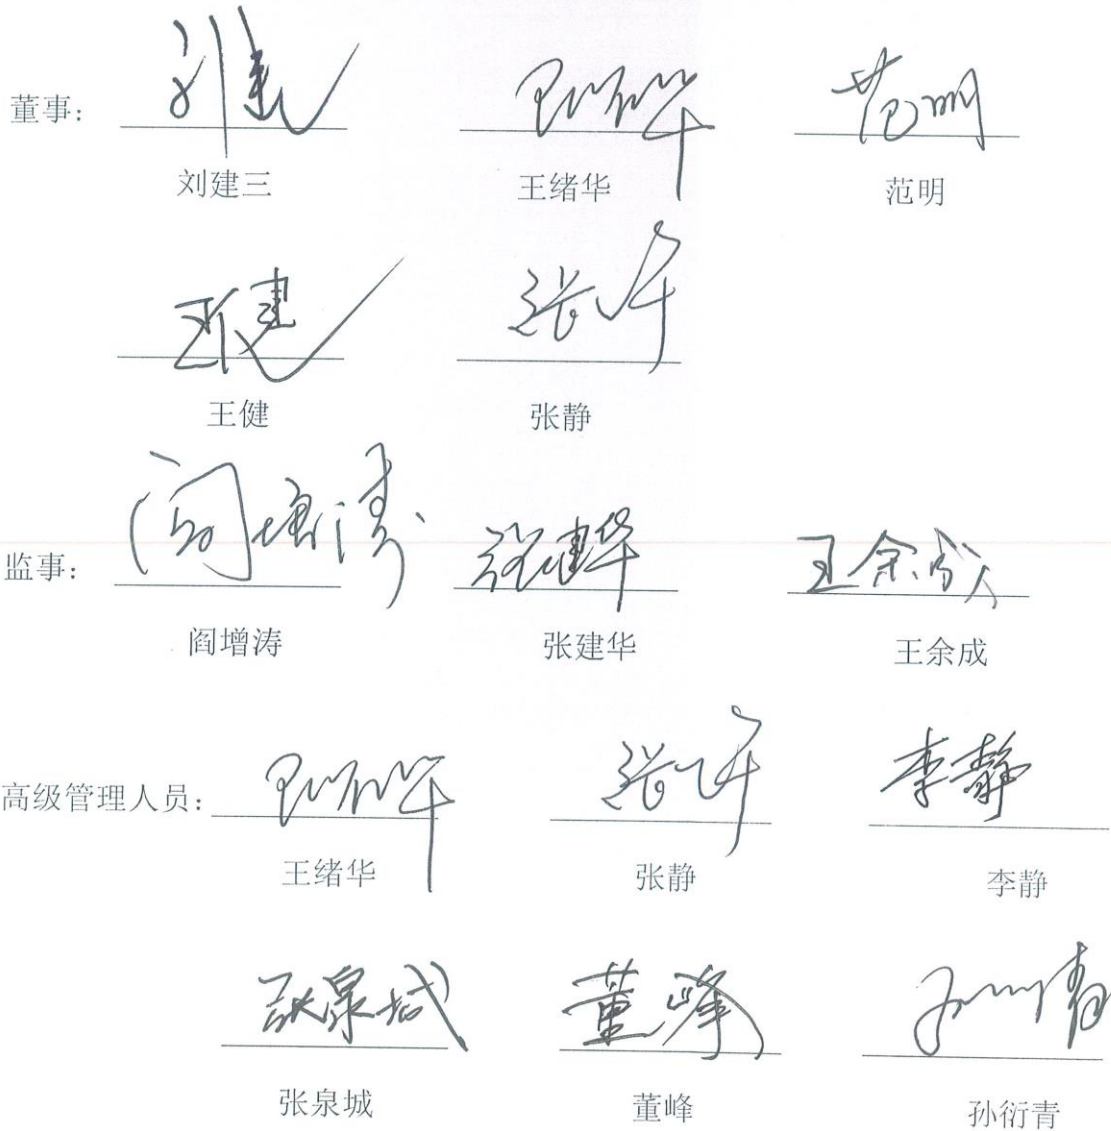 董事：
刘建三 王绪华 范明
王健 张静
监事：
阎增涛 张建华 王余成
高级管理人员：
王绪华 张静 李静
张泉城 董峰 孙衍青